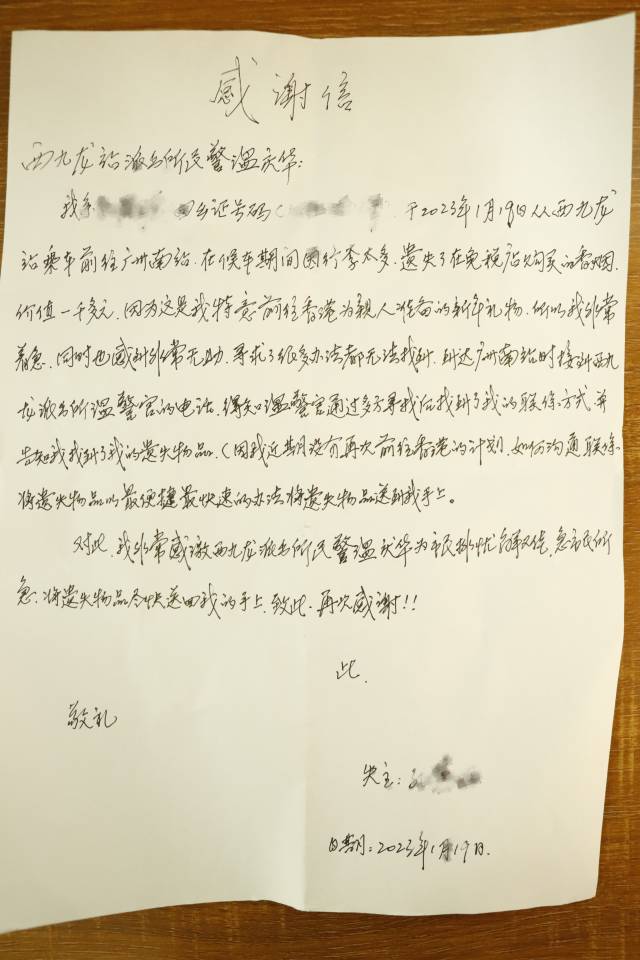 感谢信
西九龙站派出所民警温庆华:
我系 回乡证号码( 于2023年1月19日从西九龙
站乘车前往广州南站.在候车期间因行李太多.遗失了在免税店购买的香烟.
价值一千多元.因为这是我特意前往香港为亲人准备的新年礼物.所以我非常
着急.同时也感到非常无助.寻求了很多办法都无法找到.到达广州南站时接到西九
龙派出所温警官的电话.得知温警官通过多方寻找后找到了我的联系方式.并
告知我找到了我的遗失物品.(因我近期没有再次前往香港的计划.如何沟通联系.
将遗失物品以最便捷最快速的办法将遗失物品送到我手上。
对此.我非常感激西九龙派出所民警温庆华为市民排忧解难.急市民所
急.将遗失物品尽快送回我的手上.致此.再次感谢!!
此.
敬礼
失主:
日期:2023年1月19日.